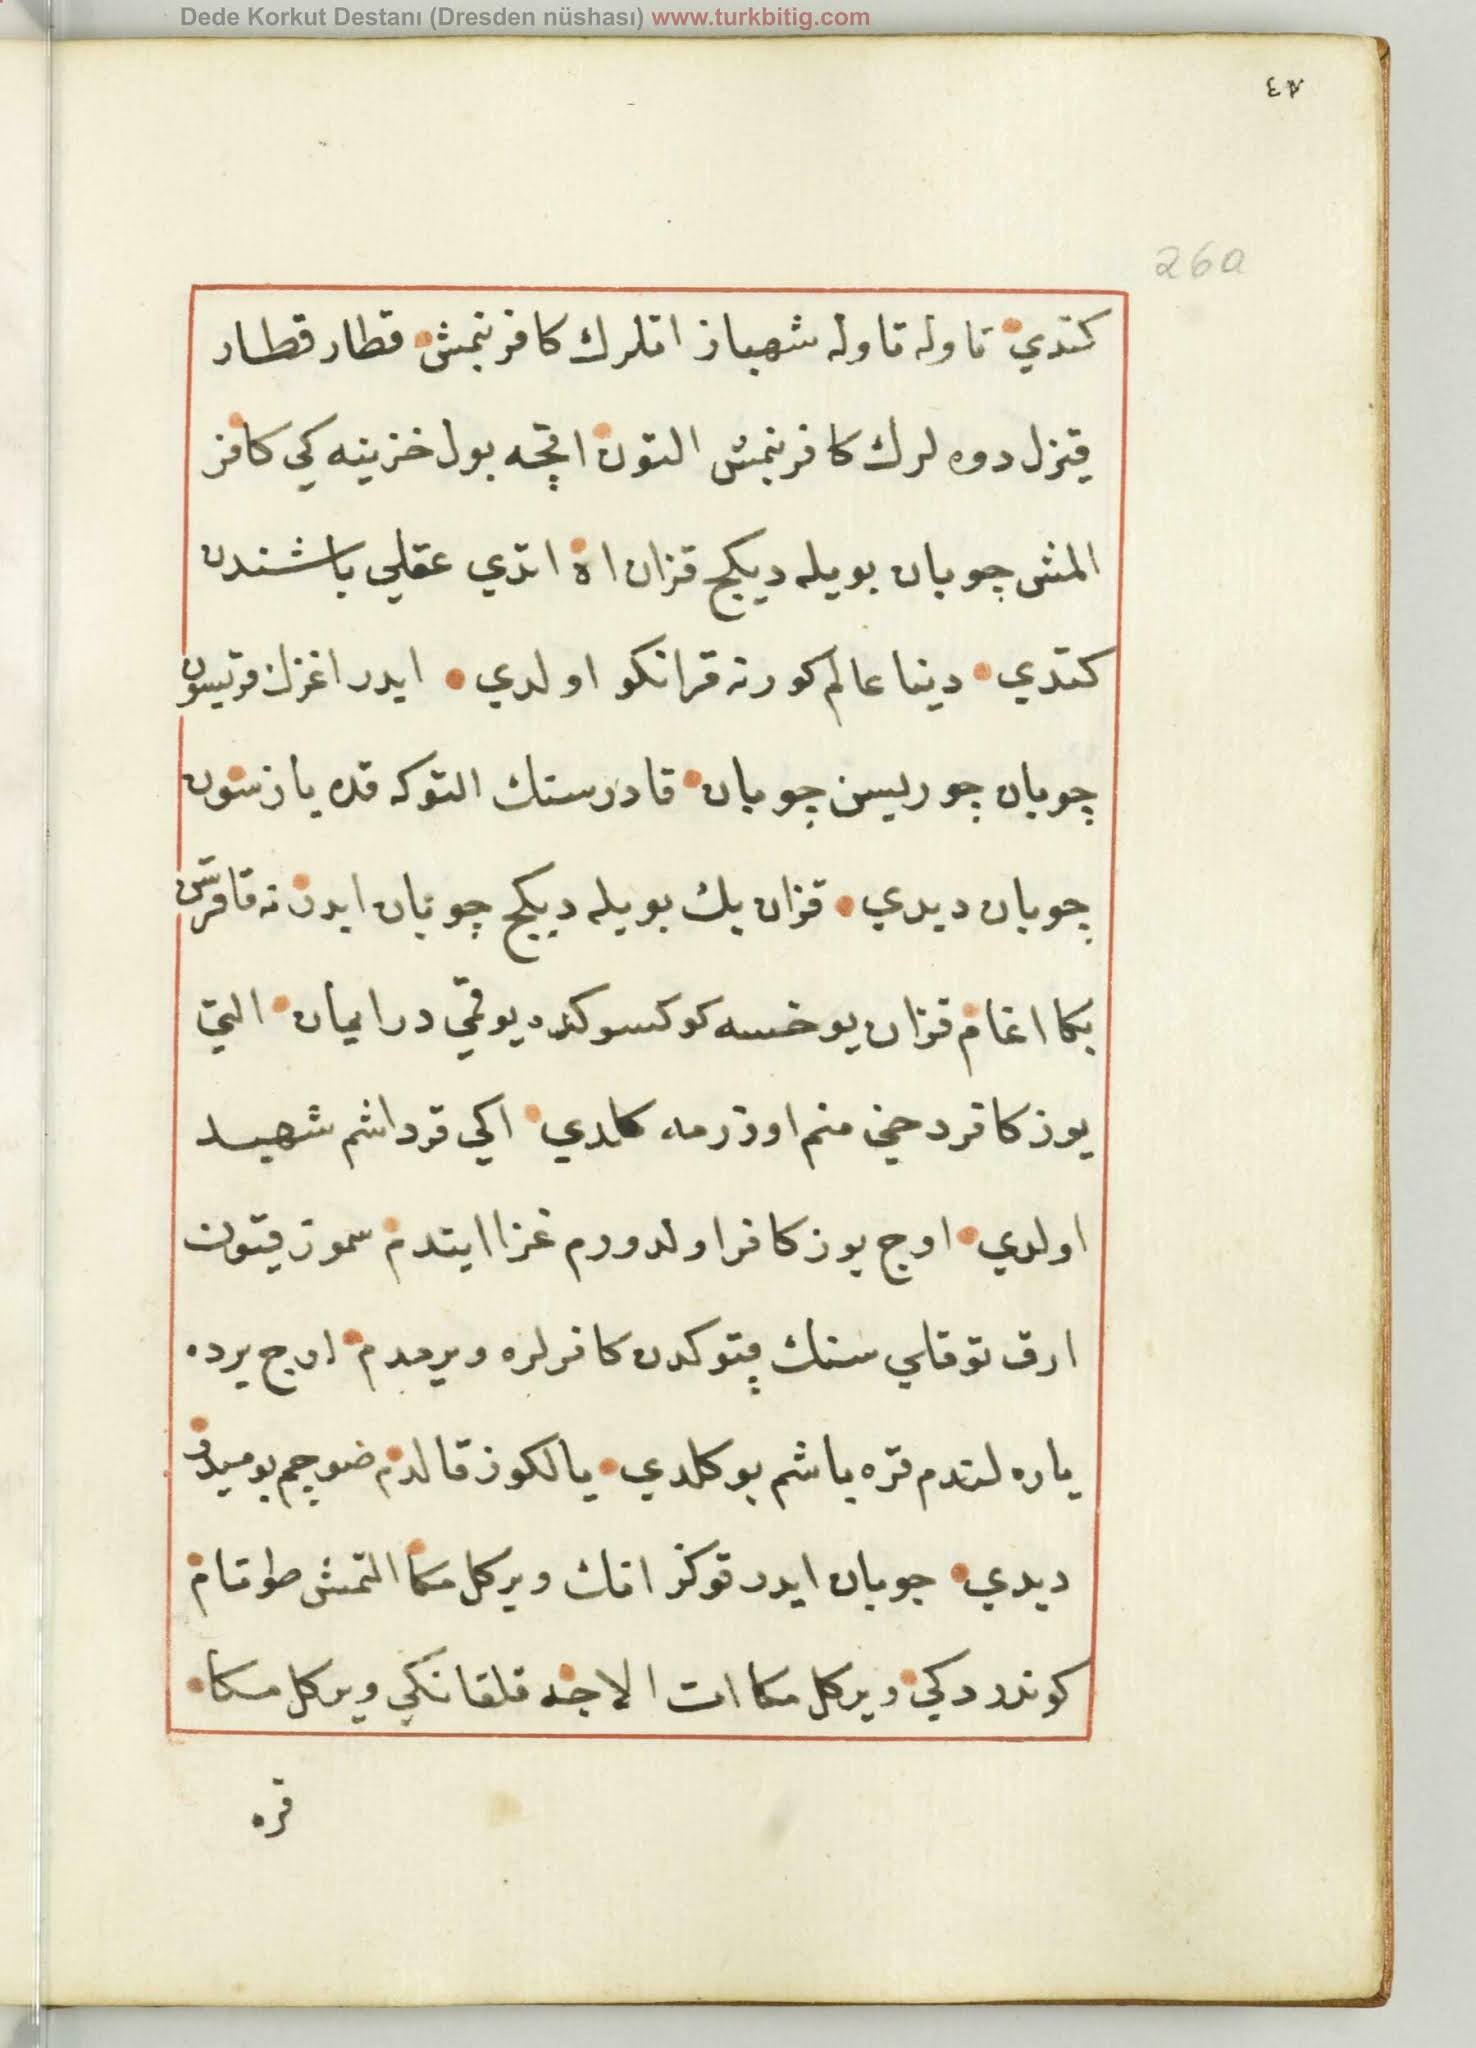 Dede Korkut Destanı (Dresden nüshası) www.turkbitig.com
٤٧
26a
كتدي تاوله تاوله شهباز اتلرك كافر بنمش قطار قطار
قيزل دوه لرك كافر بنمش التون اقچه بول خزينه كي كافر
المش چوبان بويله ديكج قزان اه اتدي عقلي باشندن
كتدي دينا عالم كورنه قرانكو اولدي ايدر اغزك قوريسون
چوبان چوريسن چوبان قادر سنك النوكه قده يازسون
چوبان ديدي قزان بك بويله ديكج چوبان ايدر نه قاقرسن
بكا اغام قزان يوخسه كوكسوكده يوقمي در ايمان التي
يوز كافر دخي منم اوزرمه كلدي اكي قرداشم شهيد
اولدي اوج يوز كافر اولدوردم غزا ايتدم سموز قيون
ارق توقلي سنك قپوكدن كافرلره ويرمدم اوج يرده
ياره لندم قره باشم بوكلدي يالكوز قالدم صوچم بوميدر
ديدي چوبان ايدر قوكر اتك ويركل مكا التمش طوتام
كوندردكي ويركل مكا ات الاجه قلقانكي ويركل مكا
قره